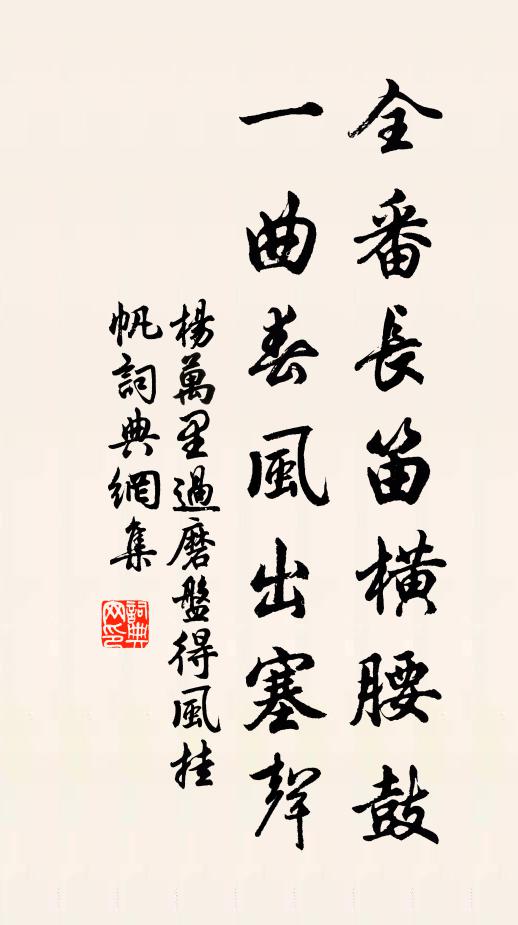 全番長笛橫腰鼓
一曲春風出塞聲
楊萬里過磨盤得風挂
帆詞典網集
詞典网印